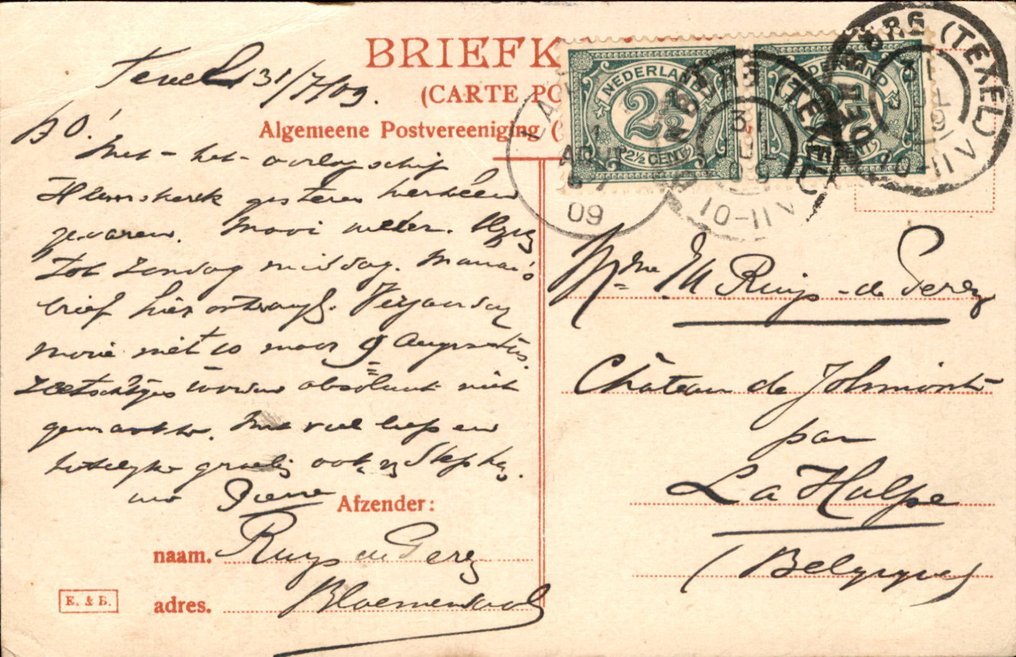 BRIEFK
(CARTE PO
Algemeene Postvereeniging (
NEDERLAND
2½
2½ CENT
BURG (TEXEL)
31
10-11 V
09
Texel 31/7/09.
BO!
Met - het - oorlogschip
Heemskerk gisteren herheen
gevaren. Mooi weder.
Tot Zondag middag. Mama's
brief hier ontvangen. Verjaardag
mooie niet 10 maar 9 Augustus.
worden absoluut niet
gemaakt. Met veel liefs en
hartelijke groeten ook
Pierre
Afzender:
naam. Ruys de Perez
adres. Bloemendaal
E. & B.
Mme M Ruijs-de Perez
Château de Johmont
par
La Hulpe
(Belgique)